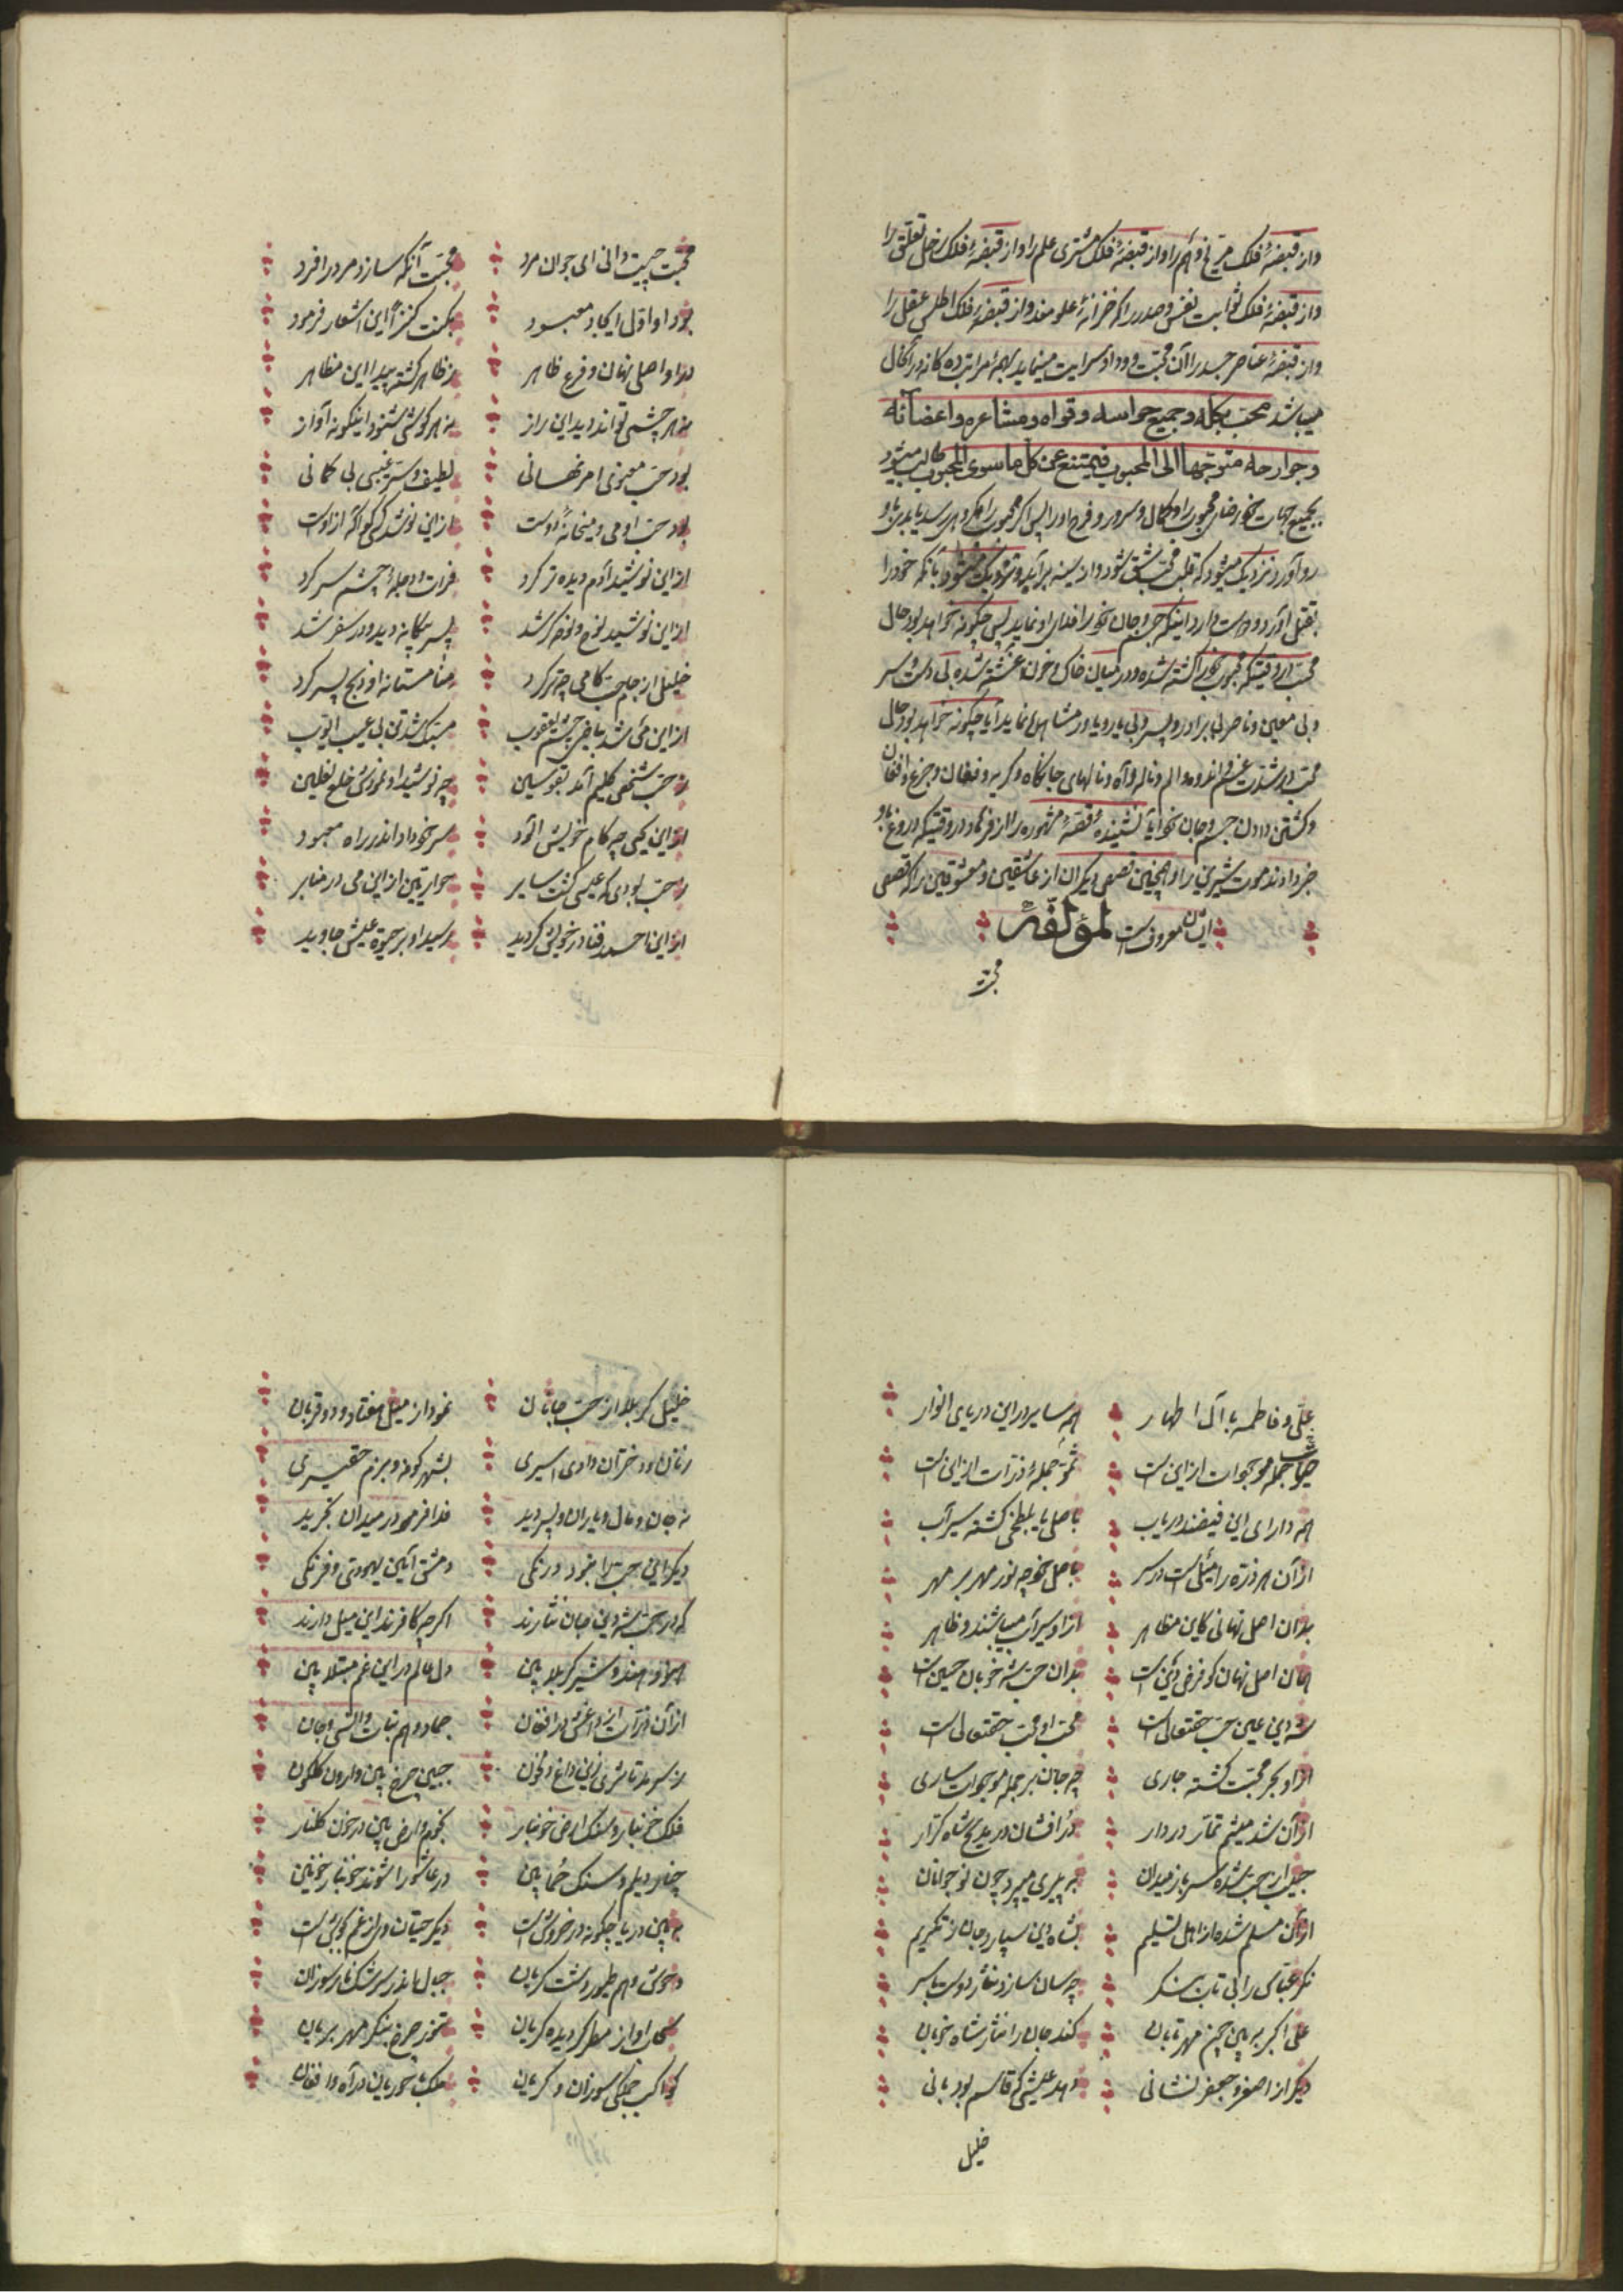 واز قبضهٔ فلک مریخ وهم را واز قبضهٔ فلک مشتری علم را واز قبضهٔ فلک زحل تعلق را
واز قبضهٔ فلک ثوابت نفس وصدر را که خزانهٔ علومند واز قبضهٔ فلک اطلس عقل را
واز قبضهٔ عناصر جسد را آن محبت و وداد سرایت مینماید بهمهٔ مراتب ده کانه در آنحال
میباشد محب بکله وجمیع حواسه وقواه ومشاعره واعضائه
وجوارحه متوجها الی المحبوب فیمتنع عن کل ما سوی المحبوب
بجمیع جهات خود رضای محبوب را وکمال وسرور وفرح اورا پس اکر محبوب را مکروهی رسد یا بلائی باو
روآورد نزدیک میشود که قلب محب شق شود واز سینه برآید ونزدیک میشود بآنکه خودرا
بقتل آورد ودوست دارد اینکه جسم وجان خود را فدای او نماید پس چکونه خواهد بود حال
محب در وقتیکه محبوب خود را کشته شده ودر میان خاک وخون آغشته شده بی دست وسر
وبی معین وناصر بی برادر وپسر وبی یار ویاور مشاهده نماید آیا چکونه خواهد بود حال
محب در شدت غم واندوه والم وناله وآه ونالهای جانکاه وکریه وفغان وجزع وافغان
وکشتن دادن جسم وجان خود آیا نشنیدهٔ قصهٔ مشهوره را از فرهاد در وقتیکه دروغ باو
خبر دادند موت شیرین را وهمچنین قصص دیکران از عاشقین ومعشوقین را که قصص
ایشان معروفست لمؤلفه
محبت
محبت چیست دانی ای جوان مرد
محبت آنکه سازد مرد را فرد
بود او اول ایجاد معبود
بکنت کنزاً این اشعار فرمود
بود او اصل نهان وفرع ظاهر
ز ظاهر کشته پیدا این مظاهر
نه هر چشمی تواند دید این راز
نه هر کوشی شنود اینکونه آواز
بود حب معنوی امر نهانی
لطیف وسر غیبی بی کمانی
بود حب او می ومیخانهٔ دوست
از این نوشد کسی کو آکه از اوست
از این نوشید آدم دیده تر کرد
فرات ودجله از چشم سر کرد
از این نوشید نوح ونوحه کر شد
پسر بیکانه دید ودر سفر شد
خلیل از جام حب کامی چه تر کرد
منا مستانه او ذبح پسر کرد
از این می شد بیاض چشم یعقوب
مشبک شد تن بی عیب ایوب
ز حب شخص کلیم آمد بقوسین
چه نوشید او نمودش خلع نعلین
از این یحیی چه کام خویش آلود
سر خود داد اندر راه معبود
ز حب بودی که عیسی کشت سایر
حواریین از این می در منابر
از این احمد فنا در خویش کردید
رسید او بر حیوة عیش جاوید
علی وفاطمه با آل اطهار
همه سایر در این دریای انوار
حیات جمله موجودات از این است
نمو جملهٔ ذرات از این است
همه دارای این فیضند دریاب
باصل یا بطفلی کشته سیراب
از آن هر ذره را میلست در سر
باصل خود چه نور مهر بر مهر
بدان اصل نهانی کاین مظاهر
از او سیراب میباشند وظاهر
همان اصل نهان کو فرض دینست
بدان حب شه خوبان حسین است
شه دین عین حب حقتعالی است
محب او محب حقتعالی است
از او بحر محبت کشته جاری
چه جان بر جمله موجودات ساری
از آن شد میثم تمار در دار
در افشان در مدیح شاه کرار
حبیب از حب شده سرباز میدان
به پیری میرود چون نوجوانان
از آن مسلم شده از اهل تسلیم
بشاه دین سپارد جان ز تکریم
نکر عباس را بی تاب بنکر
چه سان سازد نثار دوست یا سر
علی اکبر ببین چون مهر تابان
کند جان را نثار شاه خوبان
دیکر از اصغر وجعفر نشانی
دهد عیشی که قاسم بود بانی
خلیل
خلیل کربلا از حب جانان
نمود از میل هفتاد ودو قربان
زنان ودختران دادی اسیری
بشهر کوفه وبزم حقیری
نه جان ومال ویاران وپسر دید
فدا فرمود در میدان بخرید
دیکر این حب را نبود درنکی
دمشق آئین یهودی وفرنکی
که در حب شه دین جان نثارند
اکر چه کافرند این میل دارند
هنود هند وشیر کربلا بین
دل عالم در این غم مبتلا بین
از آن ذرات در افغان
جماد وهم نبات وانس وجان
ز سوسن تا شقایق داغ دلخون
جبین چرخ بین وارون کلکون
فلک خونبار وسنک ارض خونبار
نجوم وارض بین در خون کلنار
چنار دیلم وسنک حما بین
در عاشورا شوند خونبار خونین
ببین دریا چکونه در خروش است
دیکر حیتان در آن غم بجوش است
وحوش وهم طیور دشت کریان
جبال اندر سرشک نار سوزان
سحاب او از مطر کردیده کریان
تنور چرخ بنکر مهر بریان
کواکب جملکی سوزان وکریان
ملک با حوریان در آه وافغان